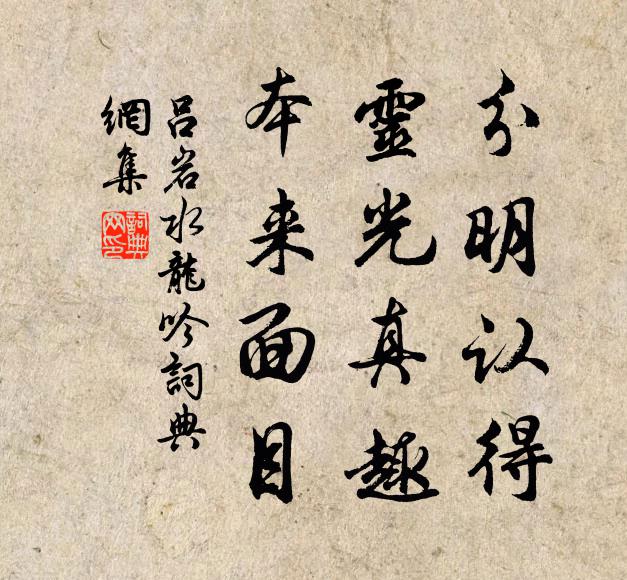 分明认得
靈光真趣
本来面目
吕岩水龍吟詞典
網集
詞典
网印